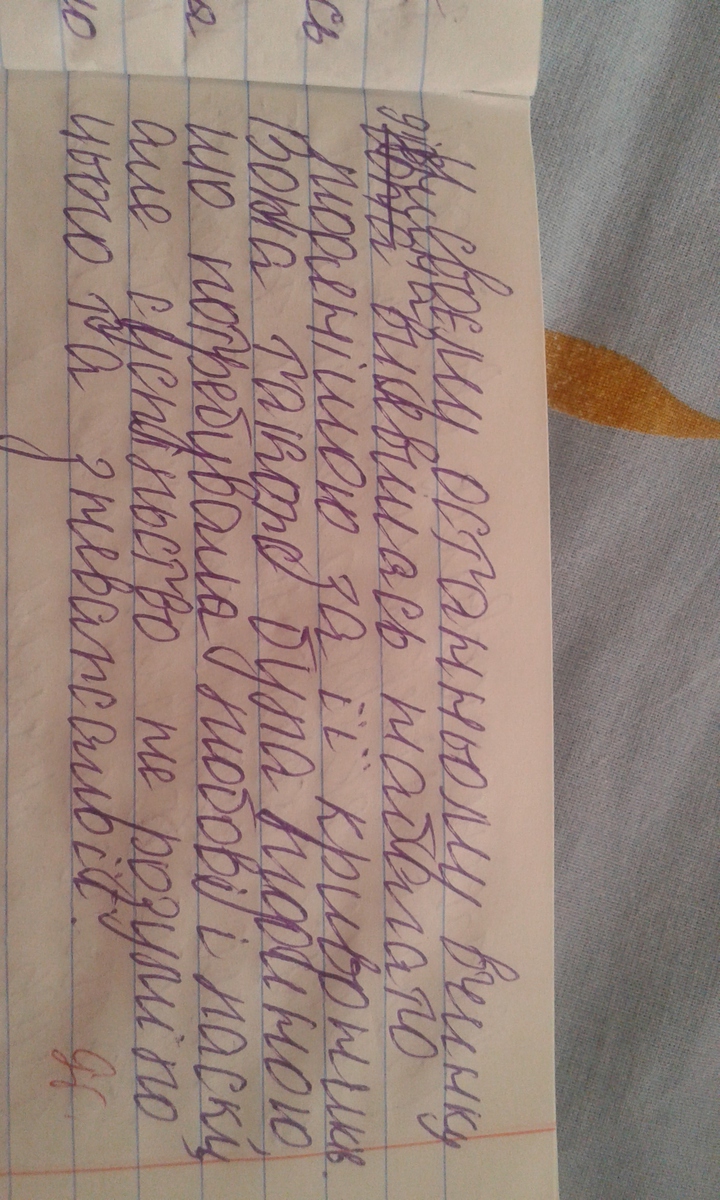 своєму останньому вчинку
дівчина виявилась набагато
людянішою за її кривдників.
Вона також була людиною
що потребувала любові і ласки,
але суспільство не розуміло
цього та зневажало її.